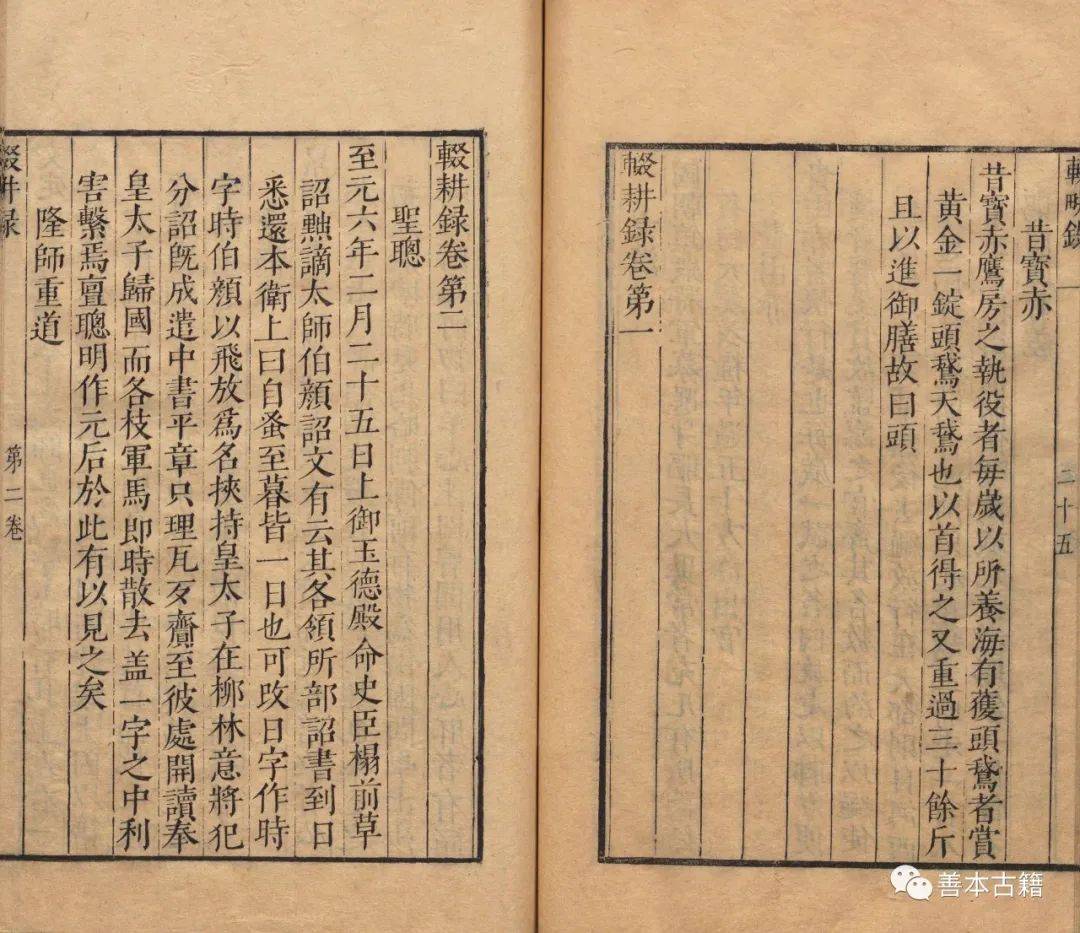 輟畊錄
一
三十五
昔寶赤
昔寶赤鷹房之執役者毎歲以所養海有獲頭鵞者賞
黃金一錠頭鵞天鵞也以首得之又重過三十餘斤
且以進御膳故曰頭
輟耕録卷第一
輟耕録卷第二
聖聰
至元六年二月二十五日上御玉德殿命史臣榻前草
詔黜謫太師伯顏詔文有云其各領所部詔書到日
悉還本衛上曰自蚤至暮皆一日也可攺日字作時
字時伯顏以飛放爲名挾持皇太子在柳林意將犯
分詔旣成遣中書平章只理瓦歹齎至彼處開讀奉
皇太子歸國而各枝軍馬即時散去盖一字之中利
害繫焉亶聰明作元后於此有以見之矣
隆師重道
輟畊录
第二卷
善本古籍